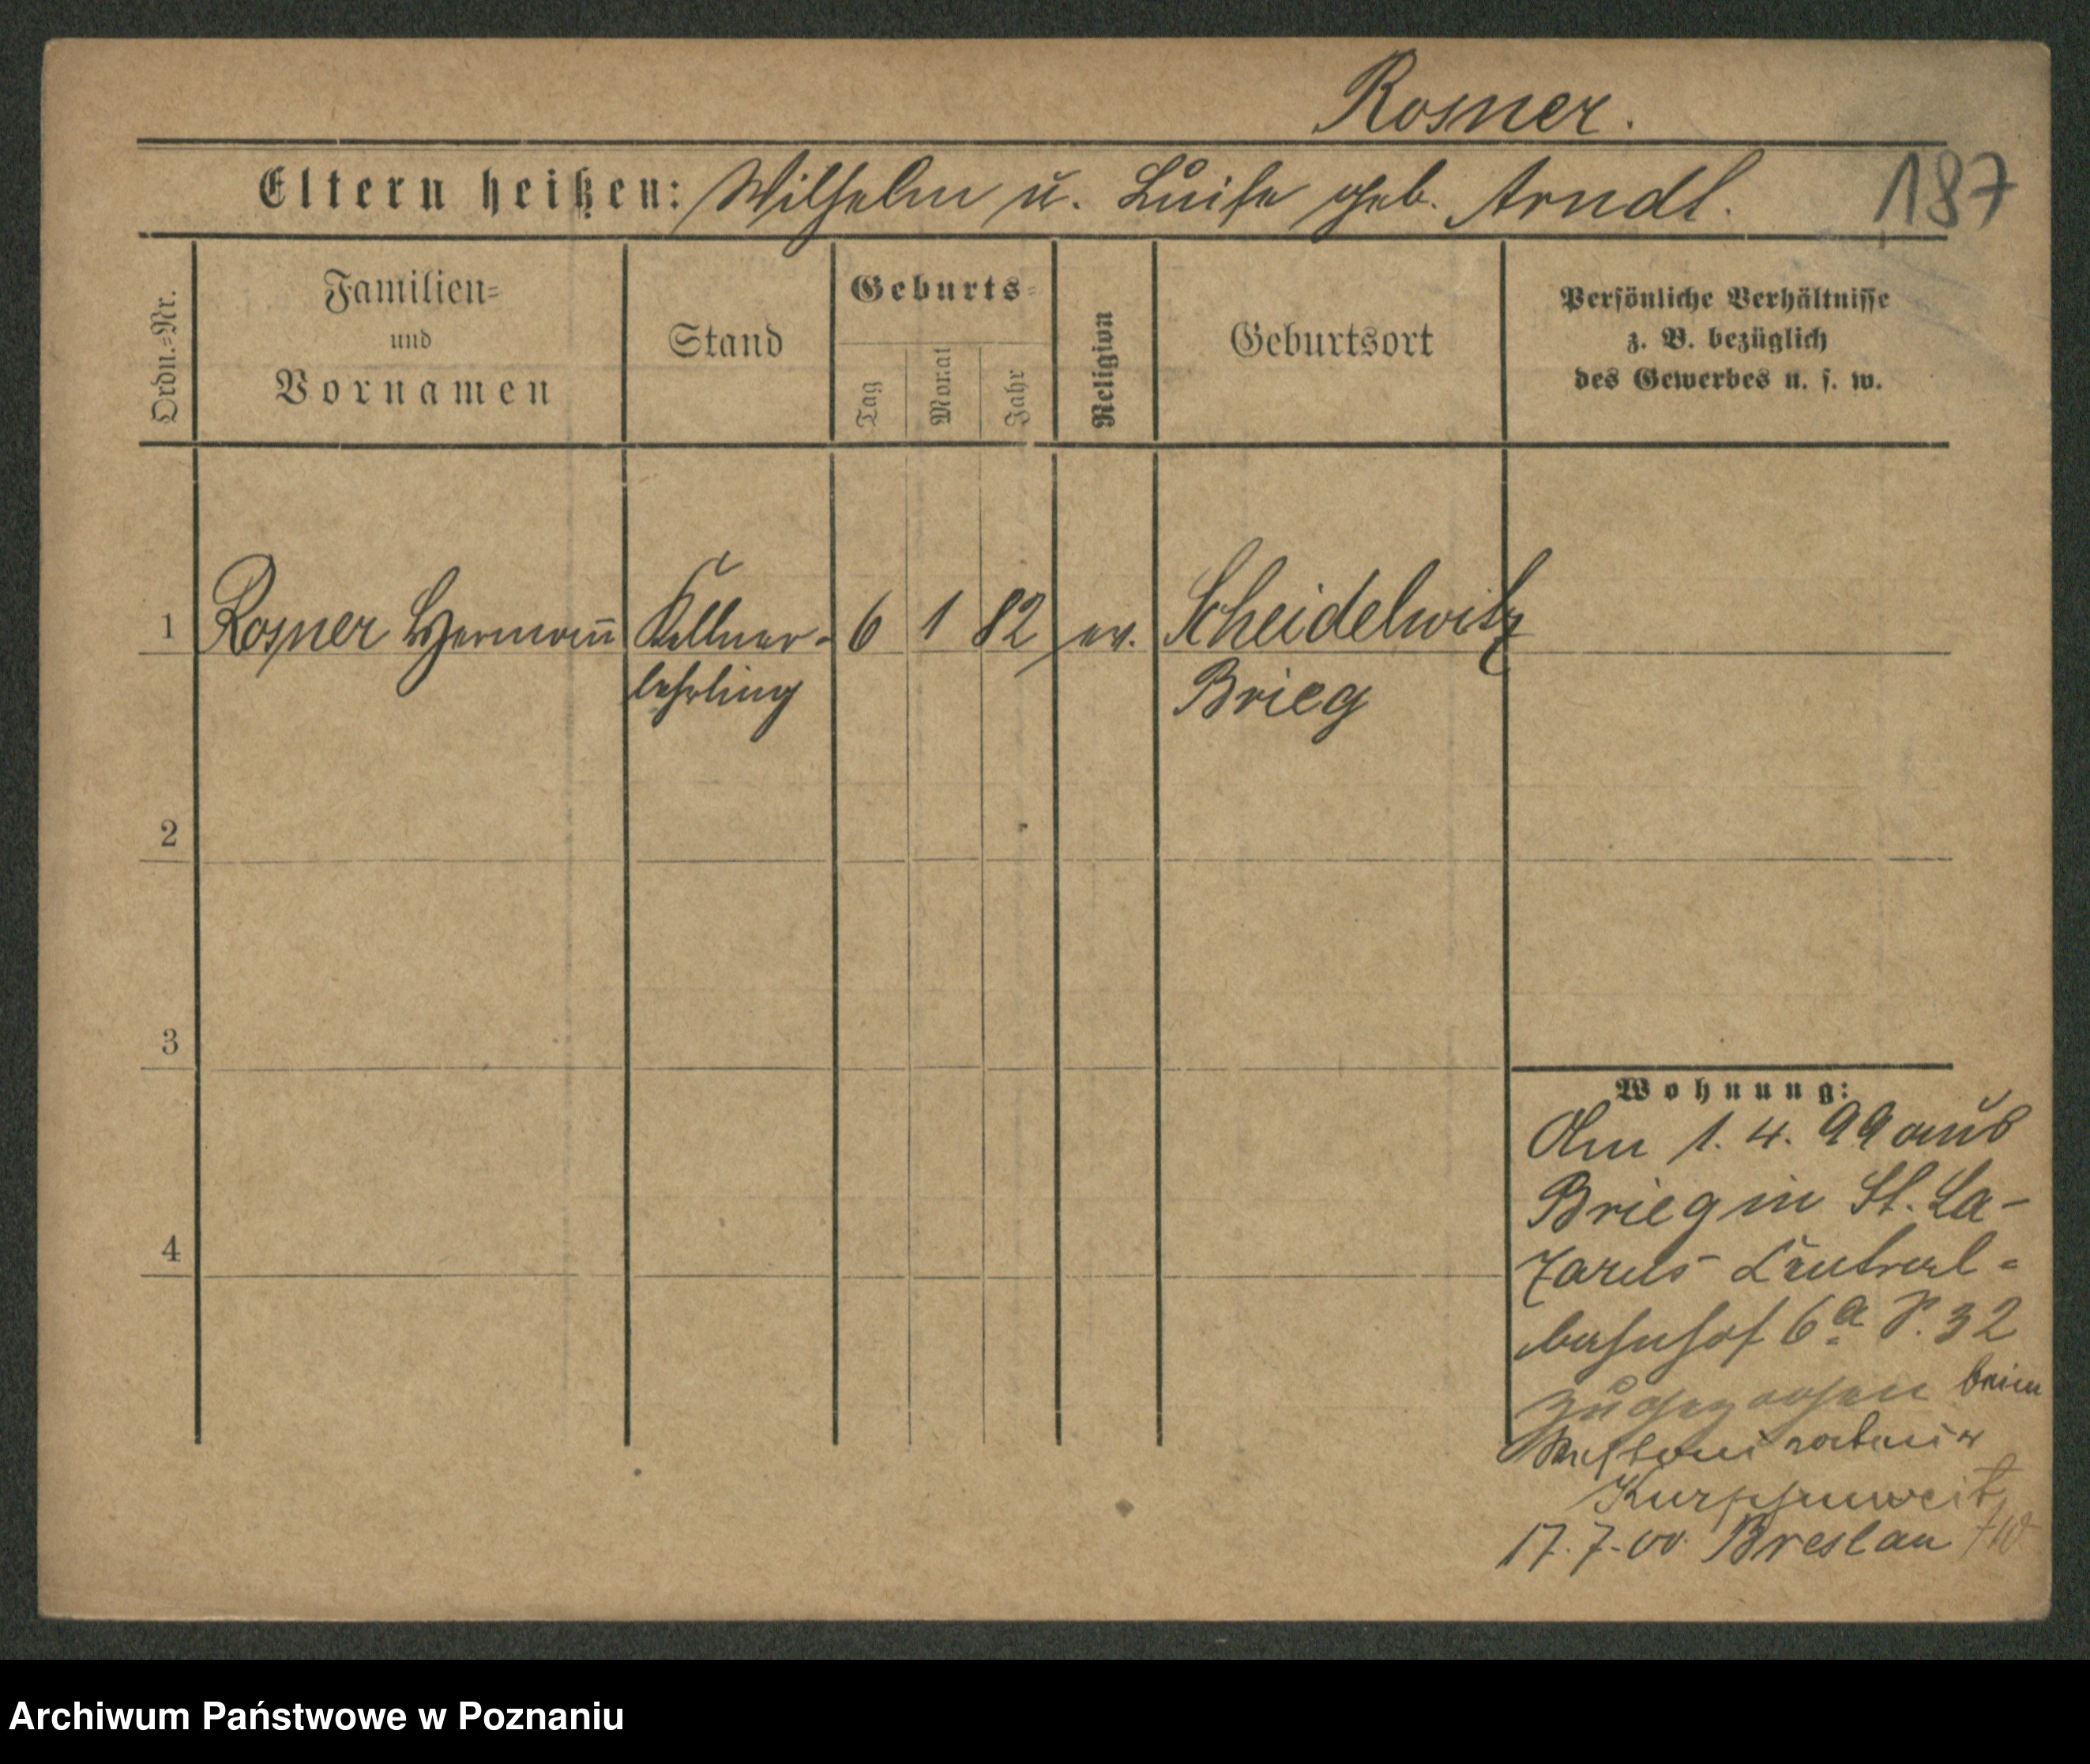 Rosner.
Eltern heißen: Wilhelm u. Luise geb. Arndt.
187
Ordn.=Nr.
Familien=
und
Vornamen
Stand
Geburts=
Tag
Monat
Jahr
Religion
Geburtsort
Persönliche Verhältnisse
z. B. bezüglich
des Gewerbes u. s. w.
1 Rosner Hermann Kellner- 6 1 82 ev. Scheidelwitz
lehrling Brieg
2
3
4
Wohnung:
Am 1. 4. 99 aus
Brieg in St. La-
zarus Central-
bahnhof 6a P. 32
zugezogen beim
Restaurateur
17. 7. 00. Breslau
Archiwum Państwowe w Poznaniu